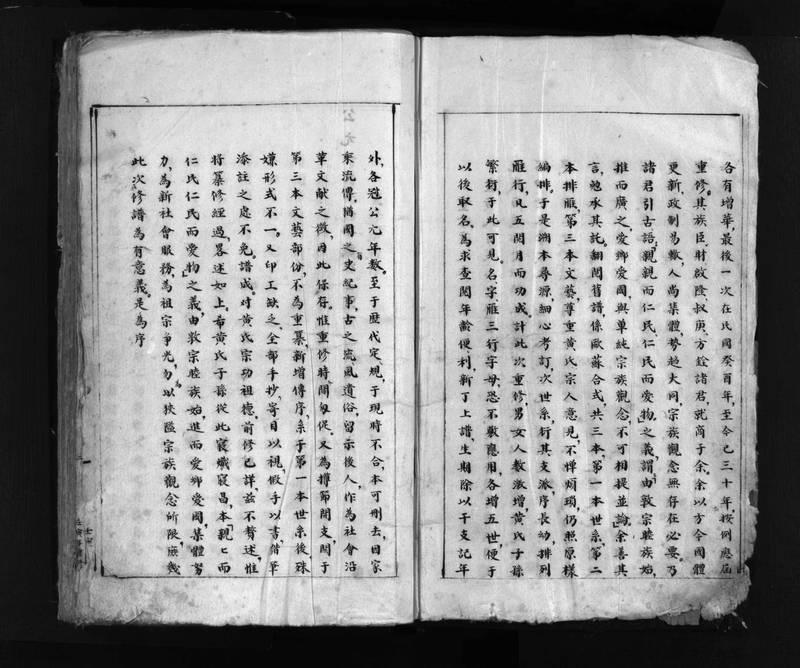 各有增華，最後一次在民國癸酉年，至今已三十年，按例應屆
重修。其族臣財紋隆、叔庚、方銓諸君，就商于余，余以方今國體
更新，政制易轍，人尚集體，勢趨大同，宗族觀念無存在必要。乃
諸君引古語，「親親而仁民，仁民而愛物」之義，謂「由敦宗睦族始，
推而廣之，愛鄉愛國，與單純宗族觀念不可相提並論。」余善其
言，勉承其託，翻閱舊譜，係歐蘇合式，共三本，第一本世系，第二
本排雁，第三本文藝，尊重黃氏宗人意見，不憚煩瑣，仍照原樣
編排，于是溯本尋源，細心考訂，次世系，衍其支派，序長幼，排列
雁行，凡五閱月而功成。計此次重修，男女人數激增，黃氏子孫
繁衍于此可見。名字雁三行字母，恐不敷應用，各增五世，便于
以後取名。為求查閱年齡便利，新丁上譜，生期除以干支記年
外，各冠公元年數。至于歷代定規，于現時不合，本可刪去，因家
乘流傳，猶國之史紀事，古之流風遺俗，留示後人，作為社會沿
革文獻之徵，因此保存。惟重修時間匆促，又為撙節開支，關于
第三本文藝部份，不為重纂，新增傳序，系于第一本世系後，殊
嫌形式不一。又印工缺乏，全部手抄，寄目以視，假手以書，借筆
添註之處不免。譜成，對黃氏宗功祖德，前修已詳，茲不贅述，惟
將纂修經過，畧述如上。希黃氏子孫從此寢熾寢昌，本「親親而
仁民，仁民而愛物」之義，由敦宗睦族始，進而愛鄉愛國，集體努
力，為新社會服務，為祖宗爭光，勿為以狹隘宗族觀念所限，庶幾
此次修譜為有意義。是為序